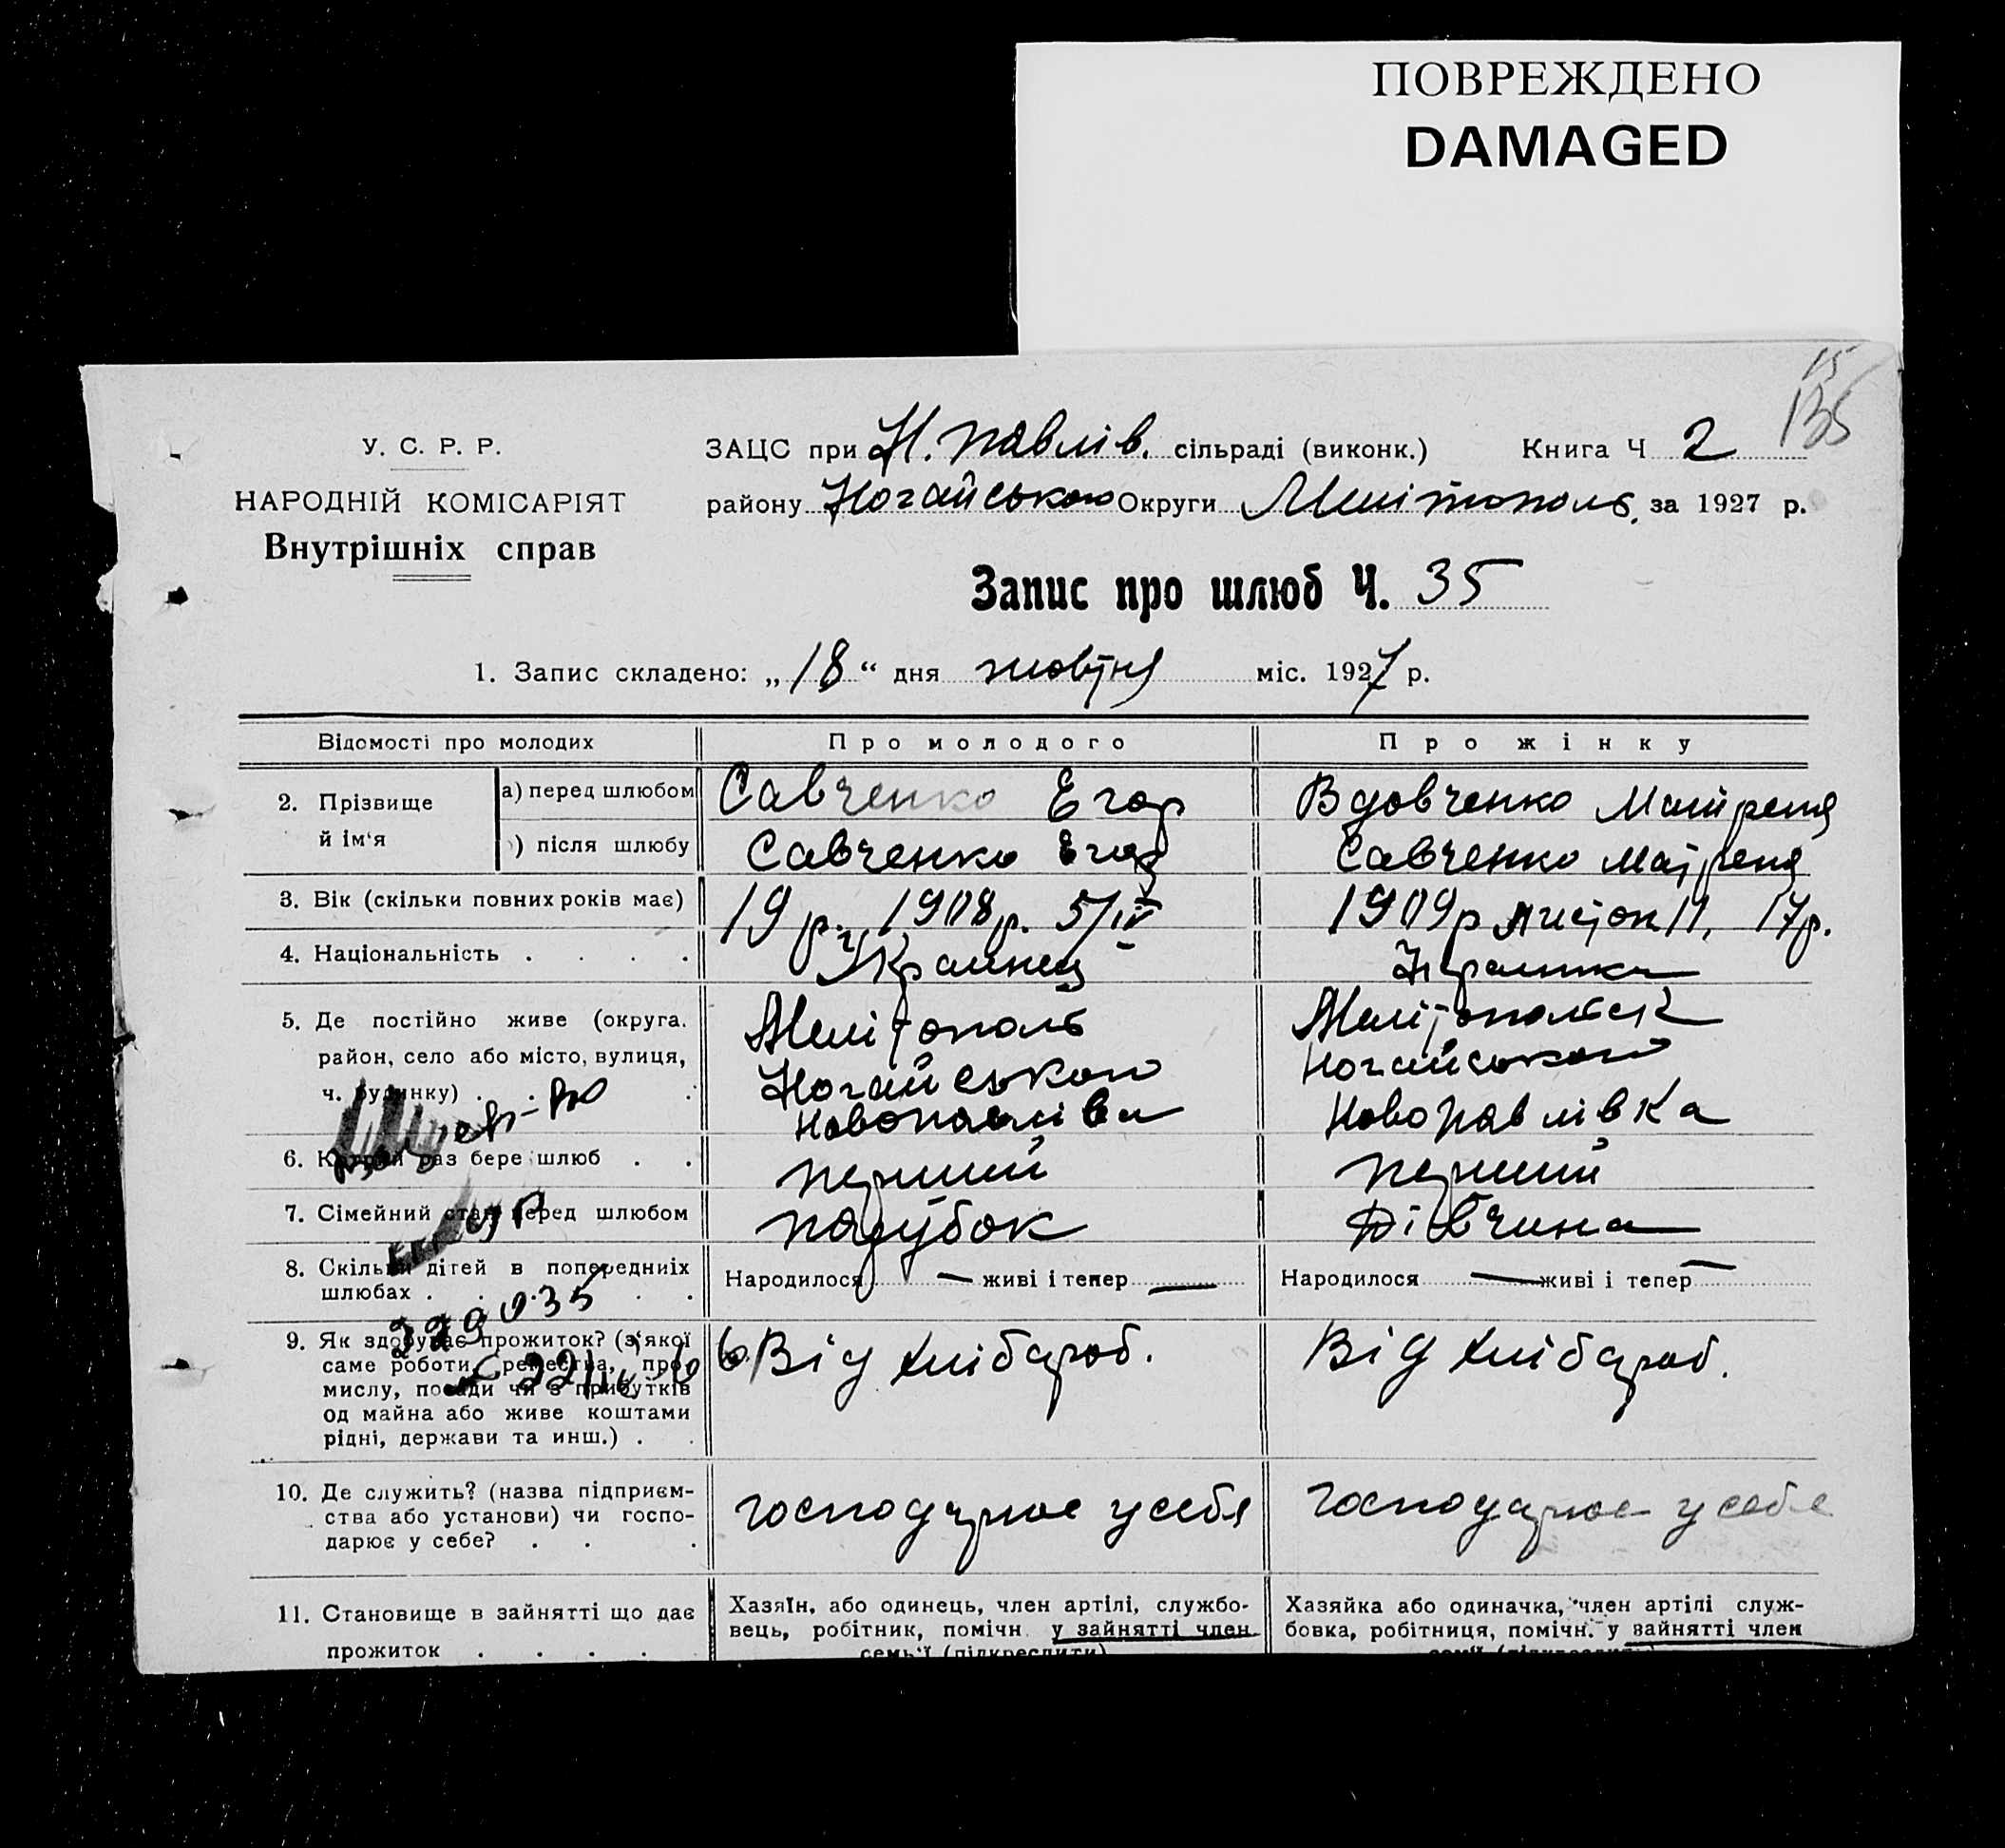 ПОВРЕЖДЕНО
DAMAGED
15
135
У. С. Р. Р.
НАРОДНІЙ КОМІСАРІЯТ
Внутрішніх справ
ЗАЦС при Н. Павлів. сільраді (виконк.) Книга Ч 2
району Ногайського Округи Мелітополь. за 1927 р.
Запис про шлюб Ч. 35
1. Запис складено: „18“ дня жовтня міс. 1927 р.
Відомості про молодих Про молодого Про жінку
2. Прізвище й ім‘я а) перед шлюбом Савченко Егор Вдовченко Матреня
) після шлюбу Савченко Егор Савченко Матреня
3. Вік (скільки повних років має) 19 р. 1908 р. 5/IV 1909 р листоп 11, 17 р.
4. Національність . . . . Українец Українка
5. Де постійно живе (округа. район, село або місто, вулиця, ч. будинку) . . .
Мелітополь
Ногайського
Новопавлівка
Мелітопольск
Ногайського
Новопавлівка
6. Котрий раз бере шлюб . . перший перший
7. Сімейний стан перед шлюбом парубок Дівчина
8. Скільки дітей в попередніх
шлюбах . . . . .
Народилося — живі і тепер —
Народилося — живі і тепер —
9. Як здобуває прожиток? (з якої
саме роботи, ремества, про-
мислу, посади чи з прибутків
од майна або живе коштами
рідні, держави та инш.) . .
Від хлібароб.
Від хлібароб.
10. Де служить? (назва підприєм-
ства або установи) чи госпо-
дарює у себе? . . .
господарює у себя
господарює у себе
11. Становище в зайнятті що дає
прожиток . . . .
Хазяїн, або одинець, член артілі, службо-
вець, робітник, помічн. у зайнятті член
семь‘ї (підкреслити)
Хазяйка або одиначка, член артілі служ-
бовка, робітниця, помічн. у зайнятті член